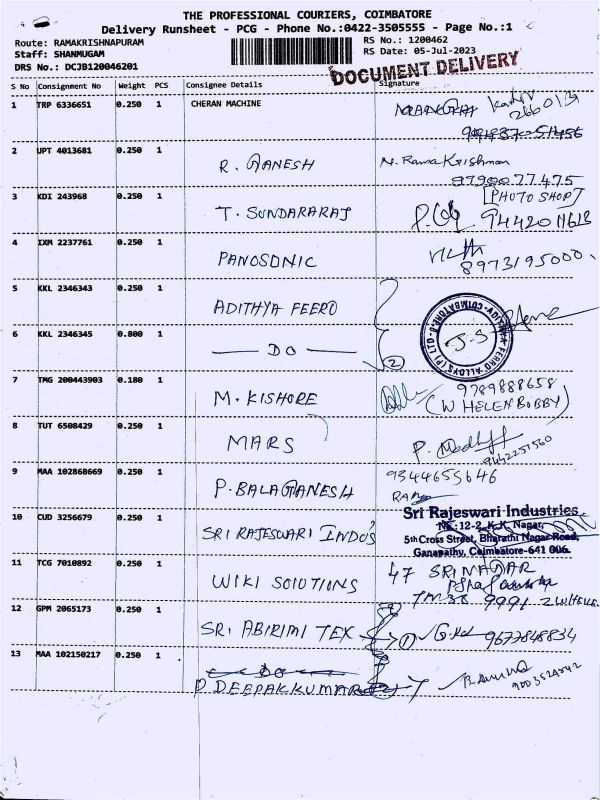 THE PROFESSIONAL COURIERS, COIMBATORE
Delivery Runsheet - PCG - Phone No.:0422-3505555 - Page No.:1
Route: RAMAKRISHNAPURAM RS No.: 1200462
Staff: SHANMUGAM RS Date: 05-Jul-2023
DRS No.: DCJB120046201
DOCUMENT DELIVERY
S No Consignment No Weight PCS Consignee Details Signature
1 TRP 6336651 0.250 1 CHERAN MACHINE
2 UPT 4013681 0.250 1 R. GANESH N. Rama Krishnan
9790077475
3 KDI 243968 0.250 1 T. SUNDARARAJ [PHOTO SHOP]
9442011618
4 IXM 2237761 0.250 1 PANOSONIC
8973195000
5 KKL 2346343 0.250 1 ADITHYA FEERO
6 KKL 2346345 0.800 1 DO 2
ADITHYA FERRO ALLOYS (P) LTD COIMBATORE
7 TMG 200443903 0.180 1 M. KISHORE 9789888658
(W HELEN BOBBY)
8 TUT 6508429 0.250 1 MARS
9442251560
9 MAA 102868669 0.250 1 P. BALAGANESH 9344655646
10 CUD 3256679 0.250 1 SRI RAJESWARI INDO'S
Sri Rajeswari Industries
12-2, K.K. Nagar,
5th Cross Street, Bharathi Nagar Road,
Ganapathy, Coimbatore-641 006.
11 TCG 7010892 0.250 1 WIKI SOIUTIONS 47 SRI NAGAR
TM 38 9991 2 WHEEL
12 GPM 2065173 0.250 1 SRI ABIRIMI TEX 1 9677848834
13 MAA 102150217 0.250 1 DO
P DEEPAK KUMAR